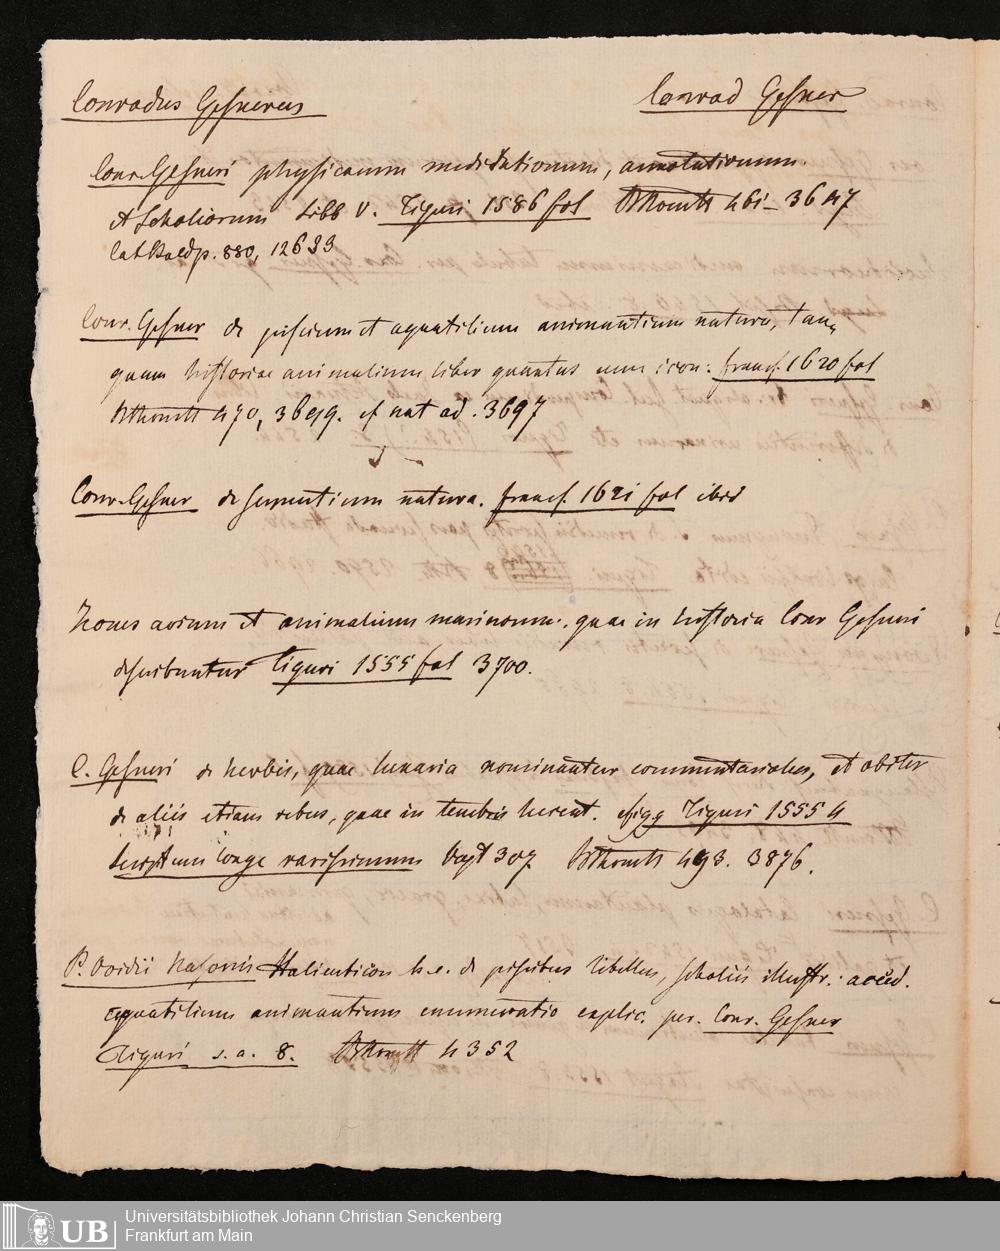 Conradus Gesnerus
Conrad Gesner
Conr. Gesneri physicarum meditationum, annotationum
et Scholiorum Libb V. Tiguri 1586 fol 3647
p. 880, 12633
Conr. Gesner de piscium et aquatilium animantium natura, tan„
quam historiae animalium liber quartus cum icon: francf. 1620 fol
470, nat ad. 3697
Conr. Gesner de serpentium natura. francf. 1621 fol ibid
Icones avium et animalium marinorum, quae in historia Conr Gesneri
describuntur Tiguri 1555 fol 3700.
C. Gesneri de herbis, quae lunaria nominantur commentariolus, et obiter
de aliis etiam rebus, quae in tenebris lucent. c figg Tiguri 1555 4
Scriptum longe rarissimum Vogt 307 493. 3876.
P. Ovidii Nasonis Halieuticon h. e. de piscibus libellus, scholiis illustr. acced.
aquatilium animantium enumeratio explic. per. Conr. Gesner
Tiguri s. a. 8. 4352
UB
Universitätsbibliothek Johann Christian Senckenberg
Frankfurt am Main